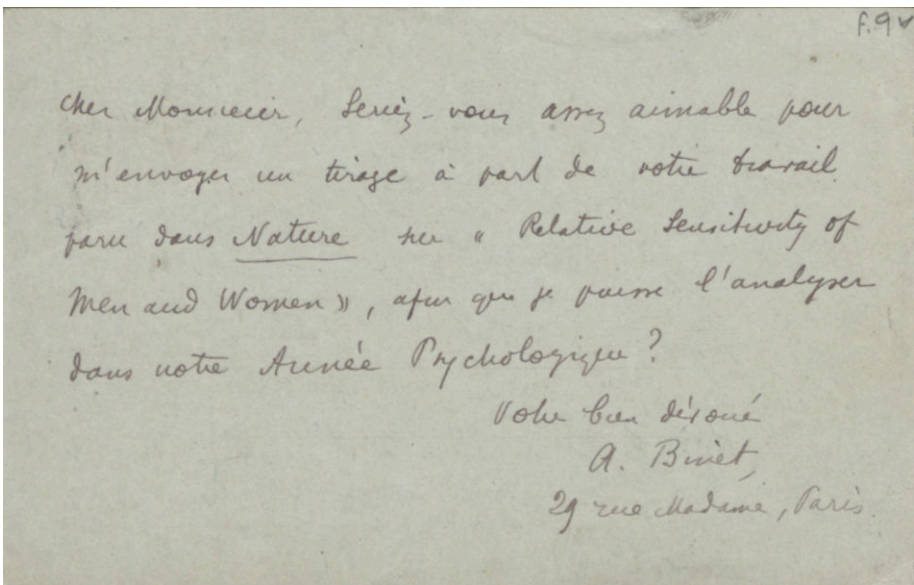 f.9v
Cher Monsieur, Seriez-vous assez aimable pour
m'envoyer un tirage à part de votre travail
paru dans Nature sur « Relative Sensitivity of
Men and Women », afin que je puisse l'analyser
dans notre Année Psychologique ?
Votre bien dévoué
A. Binet,
29 rue Madame, Paris.